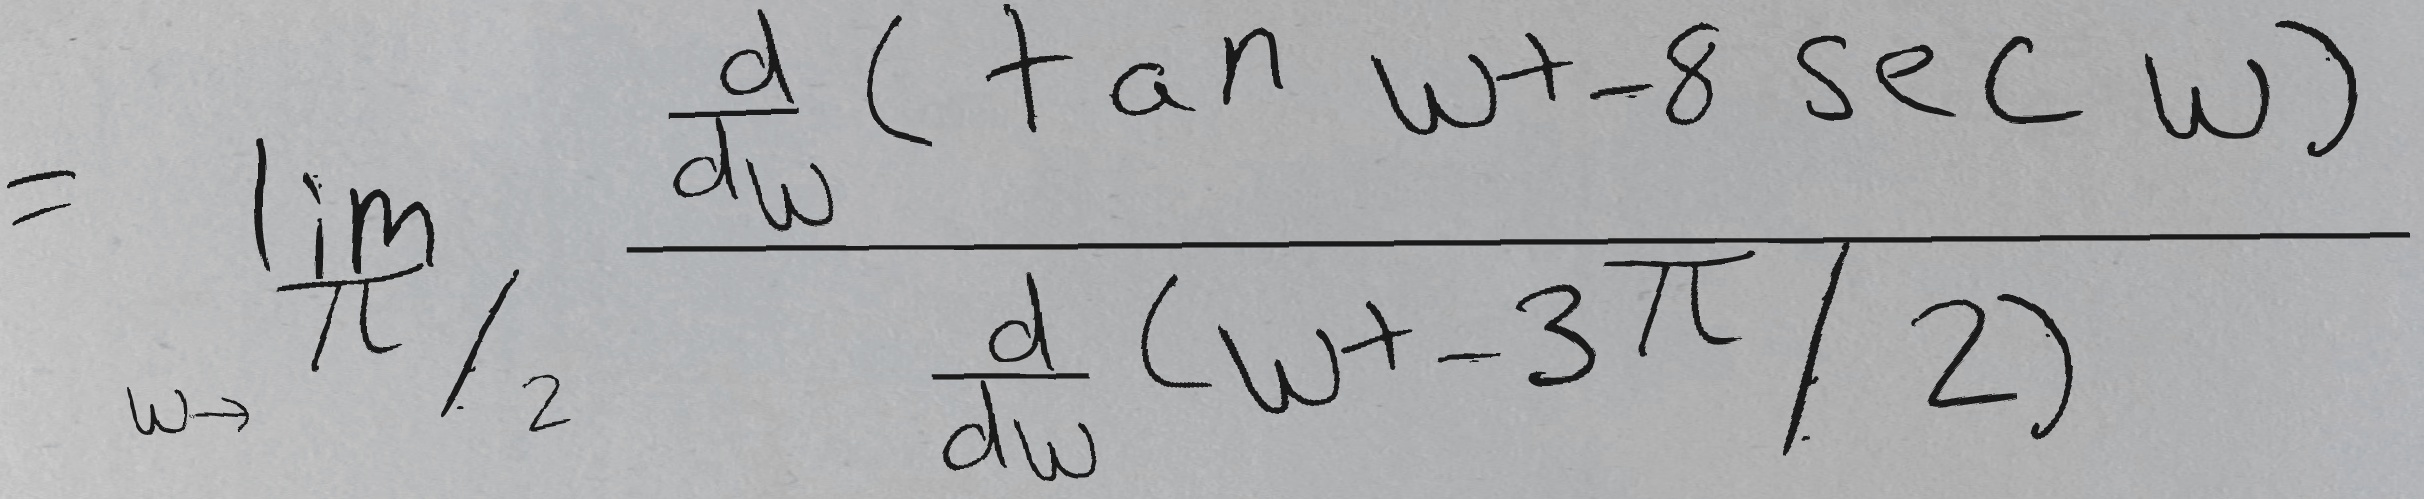 = \lim_{w \to \pi/2} \frac{\frac{d}{dw}(\tan w + -8 \sec w)}{\frac{d}{dw}(w + -3\pi/2)}